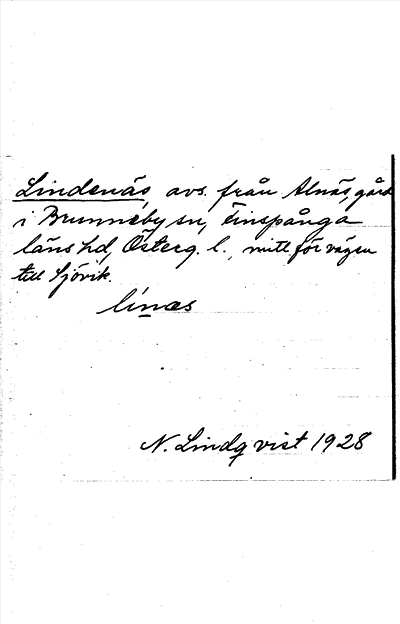 Lindenäs, avs. från Alnäs, gård
i Brunneby sn, Finspånga
läns hd, Österg. l., mitt för vägen
till Sjövik.
linæs
N. Lindqvist 1928